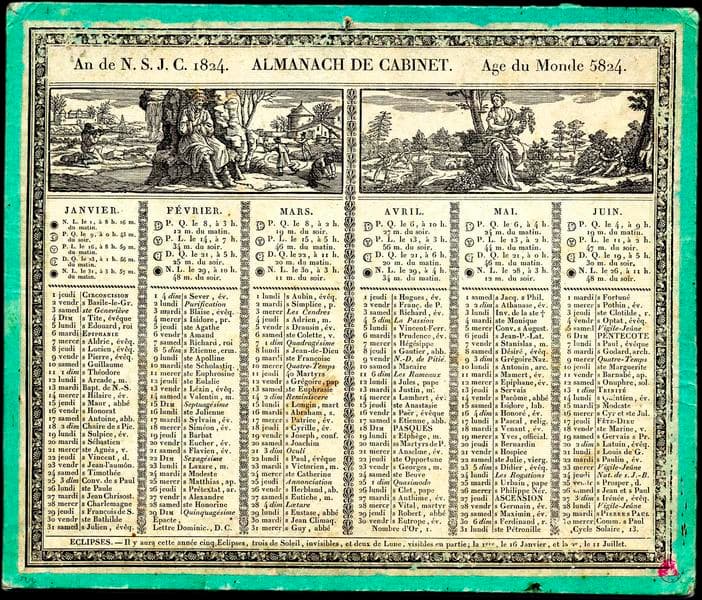 An de N. S. J. C. 1824. ALMANACH DE CABINET. Age du Monde 5824.
JANVIER.
N. L. le 1, à 8 h. 26 m.
du matin.
P. Q. le 9, à 0 h. 43
m. du soir.
P. L. le 16, à 8 h. 59 m.
du matin.
D. Q. le 23, à 1 h. 56
m. du matin.
N. L. le 31, à 3 h. 57
1 jeudi CIRCONCISION
2 vendr s Basile-le-Gr.
3 samed ste Geneviève
4 DIM s Tite, évêque
5 lundi s Edouard, roi
6 mardi EPIPHANIE
7 mercr s Aldric, évêq.
8 jeudi s Lucien, évêq.
9 vendr s Pierre, évêq.
10 samed s Guillaume
11 1 dim s Théodore
12 lundi s Arcade, m.
13 mardi Bapt. de N.-S.
14 mercr s Hilaire, év.
15 jeudi s Maur, abbé
16 vendr s Honorat
17 samed s Antoine, abb.
18 2 dim s Chaire de s Pic.
19 lundi s Sulpice, év.
20 mardi s Sébastien
21 mercr ste Agnès, v.
22 jeudi s Vincent, d.
23 vendr s Jean l'aumôn.
24 samed s Timothée
25 3 dim Conv. de s Paul
26 lundi ste Paule
27 mardi s Jean Chrisost.
28 mercr s Charlemagne
29 jeudi s François de S.
30 vendr ste Bathilde
31 samed s Julien, évêq.
FÉVRIER.
P. Q. le 8, à 3 h.
13 m. du matin.
P. L. le 14, à 7 h.
34 m. du soir.
D. Q. le 21, à 5 h.
25 m. du soir.
N. L. le 29, à 10 h.
48 m. du soir.
1 4 dim s Sever, év.
2 lundi Purification
3 mardi s Blaise, évêq.
4 mercr s Isidore, pr.
5 jeudi ste Agathe
6 vendr s Amand
7 samed s Richard, roi
8 5 dim s Etienne, erm.
9 lundi ste Apolline
10 mardi ste Scholastiq.
11 mercr ste Euphrosine
12 jeudi ste Eulalie
13 vendr s Lézin, évêq.
14 samed s Valentin, m.
15 DIM Septuagésime
16 lundi ste Julienne
17 mardi s Sylvain, év.
18 mercr s Siméon, év.
19 jeudi s Barbat
20 vendr s Eucher, év.
21 samed s Flavien, év.
22 DIM Sexagésime
23 lundi s Lazare, m.
23 mardi s Modeste
25 mercr s Matthias, ap.
26 jeudi s Prétextat, ar.
27 vendr s Alexandre
28 samed ste Honorine
29 DIM Quinquagésime
Epacte,
Lettre Dominic., D. C.
MARS.
P. Q. le 8, à 2 h.
19 m. du soir.
P. L. le 15, à 5 h.
46 m. du matin.
D. Q. le 22, à 11 h.
20 m. du matin.
N. L. le 30, à 3 h.
11 m. du soir.
1 lundi s Aubin, évêq.
2 mardi s Simplice, p.
3 mercr Les Cendres
4 jeudi s Adrien, m.
5 vendr s Drausin, évêq.
6 samed ste Colette, v.
7 1 dim Quadragésime
8 lundi s Jean-de-Dieu
9 mardi ste Françoise
10 mercr Quatre-Temps
11 jeudi 40 Martyrs
12 vendr s Grégoire, pap
13 samed ste Euphrasie
14 2 dim Reminiscere
15 lundi s Longin, mart
16 mardi s Abraham, s.
17 mercr s Patrice, évêq.
18 jeudi s Cyrille, év.
19 vendr s Joseph, conf.
20 samed s Joachim
21 3 dim Oculi
22 lundi s Paul, évêque
23 mardi s Victorien, m.
24 mercr ste Catherine
25 jeudi Annonciation
26 vendr s Herbland, ab.
27 samed s Eutiche, év.
28 4 dim Lætare
29 lundi s Eustase, abbé
30 mardi s Jean Climaq.
31 mercr s Guy, abbé
AVRIL.
P. Q. le 6, à 10 h.
56 m. du soir.
P. L. le 13, à 3 h.
56 m. du soir.
D. Q. le 21, à 6 h.
20 m. du matin.
N. L. le 29, à 4 h.
34 m. du matin.
1 jeudi s Hugues, év.
2 vendr s Franç. de P.
3 samed s Richard, év.
4 5 dim La Passion
5 lundi s Vincent-Ferr.
6 mardi s Prudence, év.
7 mercr s Hégésippe
8 jeudi s Gautier, abb.
9 vendr N.-D. de Pitié.
10 samed s Macaire
11 6 dim Les Rameaux
12 lundi s Jules, pape
13 mardi s Justin, m.
14 mercr s Lambert, év.
15 jeudi ste Anastasie
16 vendr s Paër, évêque
17 samed s Etienne, abb.
18 DIM PASQUES
19 lundi s Elphège, m.
20 mardi s Martyrs de P.
21 mercr s Anselme, év.
22 jeudi ste Opportune
23 vendr s Georges, m.
24 samed ste Beuve
25 1 dim Quasimodo
26 lundi s Clet, pape
27 mardi s Anthime, év.
28 mercr s Vital, martyr
29 jeudi s Robert, abbé
30 vendr s Eutrope, év.
Nombre d'Or, 1.
MAI.
P. Q. le 6, à 4 h.
25 m. du matin.
P. L. le 13, à 2 h.
44 m. du matin.
D. Q. le 21, à 0 h.
46 m. du matin.
N. L. le 28, à 3 h.
12 m. du soir.
1 samed s Jacq. s Phil.
2 2 dim s Athanase, év.
3 lundi Inv. de la ste †
4 mardi ste Monique
5 mercr Conv. s August.
6 jeudi s Jean-P.-Lat.
7 vendr s Stanislas, m.
8 samed s Désiré, évêq.
9 3 dim s Grégoire Naz.
10 lundi s Antonin, arc.
11 mardi s Mamert, év.
12 mercr s Epiphane, év.
13 jeudi s Servais
14 vendr s Pacôme, abbé
15 samed s Isidore, lab.
16 4 dim s Honoré, év.
17 lundi s Pascal, relig.
18 mardi s Venant, év.
19 mercr s Yves, official
20 jeudi s Bernardin
21 vendr s Hospice
22 samed ste Julie, vierg.
23 5 dim s Didier, évêq.
24 lundi Les Rogations
25 mardi s Urbain, pape
26 mercr s Philippe Nér.
27 jeudi ASCENSION
28 vendr s Germain, év.
29 samed s Maximin, év.
30 6 dim s Ferdinand, r.
31 lundi ste Pétronille
JUIN.
P. Q. le 4, à 9 h.
19 m. du matin.
P. L. le 11, à 2 h.
47 m. du soir.
D. Q. le 19, à 5 h.
30 m. du soir.
N. L. le 26, à 11 h.
48 m. du soir.
1 mardi s Fortuné
2 mercr s Pothin, év.
3 jeudi ste Clotilde, r.
4 vendr s Optat, évêq.
5 samed Vigile-Jeûne
6 DIM PENTECOTE
7 lundi s Paul, évêque
8 mardi s Godard, arch.
9 mercr Quatre-Temps
10 jeudi ste Marguerite
11 vendr s Barnabé, ap.
12 samed s Onuphre, sol.
13 dim TRINITÉ
14 lundi s Quentien, év.
15 mardi s Modeste
16 mercr s Cyr et ste Jul.
17 jeudi FÊTE-DIEU
18 vendr ste Marine, v.
19 samed s Gervais s Pr.
20 2 dim s Latuin, évêq.
21 lundi s Louis de G.
22 mardi s Paulin, év.
23 mercr Vigile-Jeûne
24 jeudi Nat. de s J.-B.
25 vendr s Prosper, d.
26 samed s Jean et s Paul
27 3 dim s Irénée, évêq.
28 lundi Vigile-Jeûne
29 mardi s PIERRE s PAUL
30 mercr Comm. s Paul
Cycle Solaire, 13.
ECLIPSES. — Il y aura cette année cinq Eclipses, trois de Soleil, invisibles, et deux de Lune, visibles en partie; la 1ere, le 16 Janvier, et la 2e, le 11 Juillet.